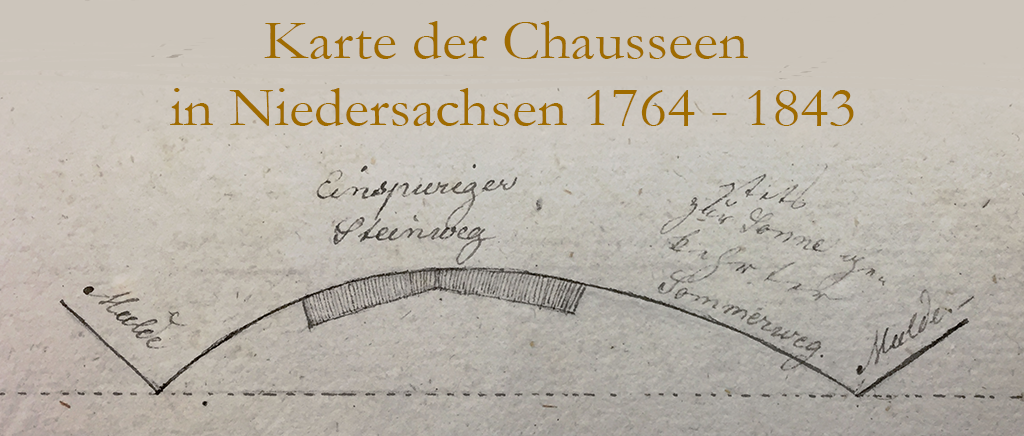 Karte der Chausseen
in Niedersachsen 1764 - 1843
Einspuriger
Steinweg
stets
zur Sonne ge
kehrter
Sommerweg.
Mulde
Mulde!